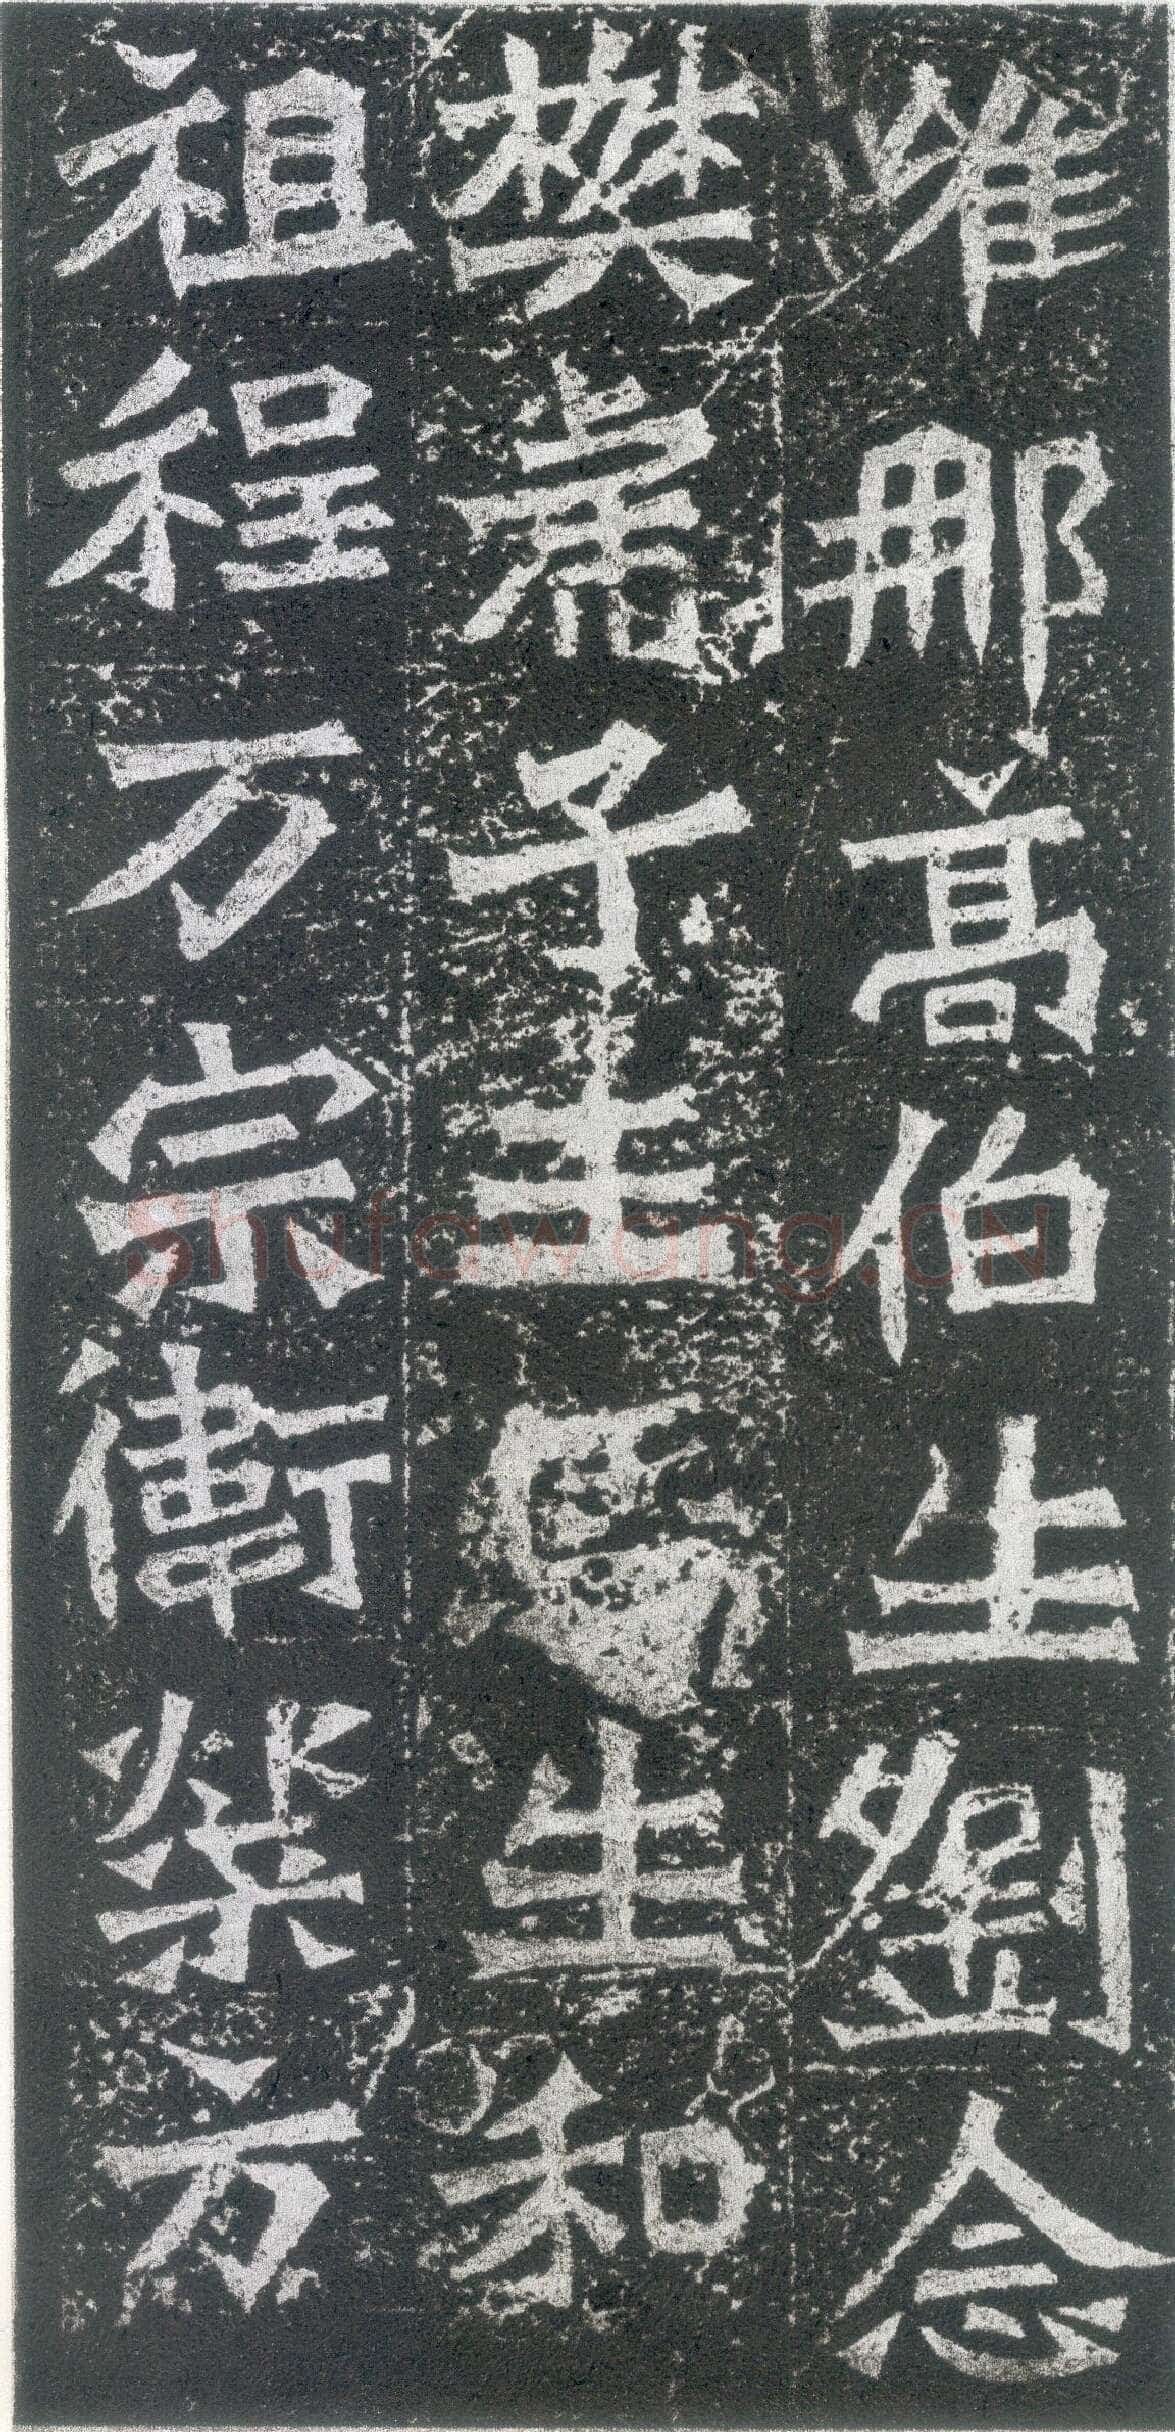 唯那高伯生劉念
樊虎子王馬生和
祖程万宗衛榮方
Shufawang.CN